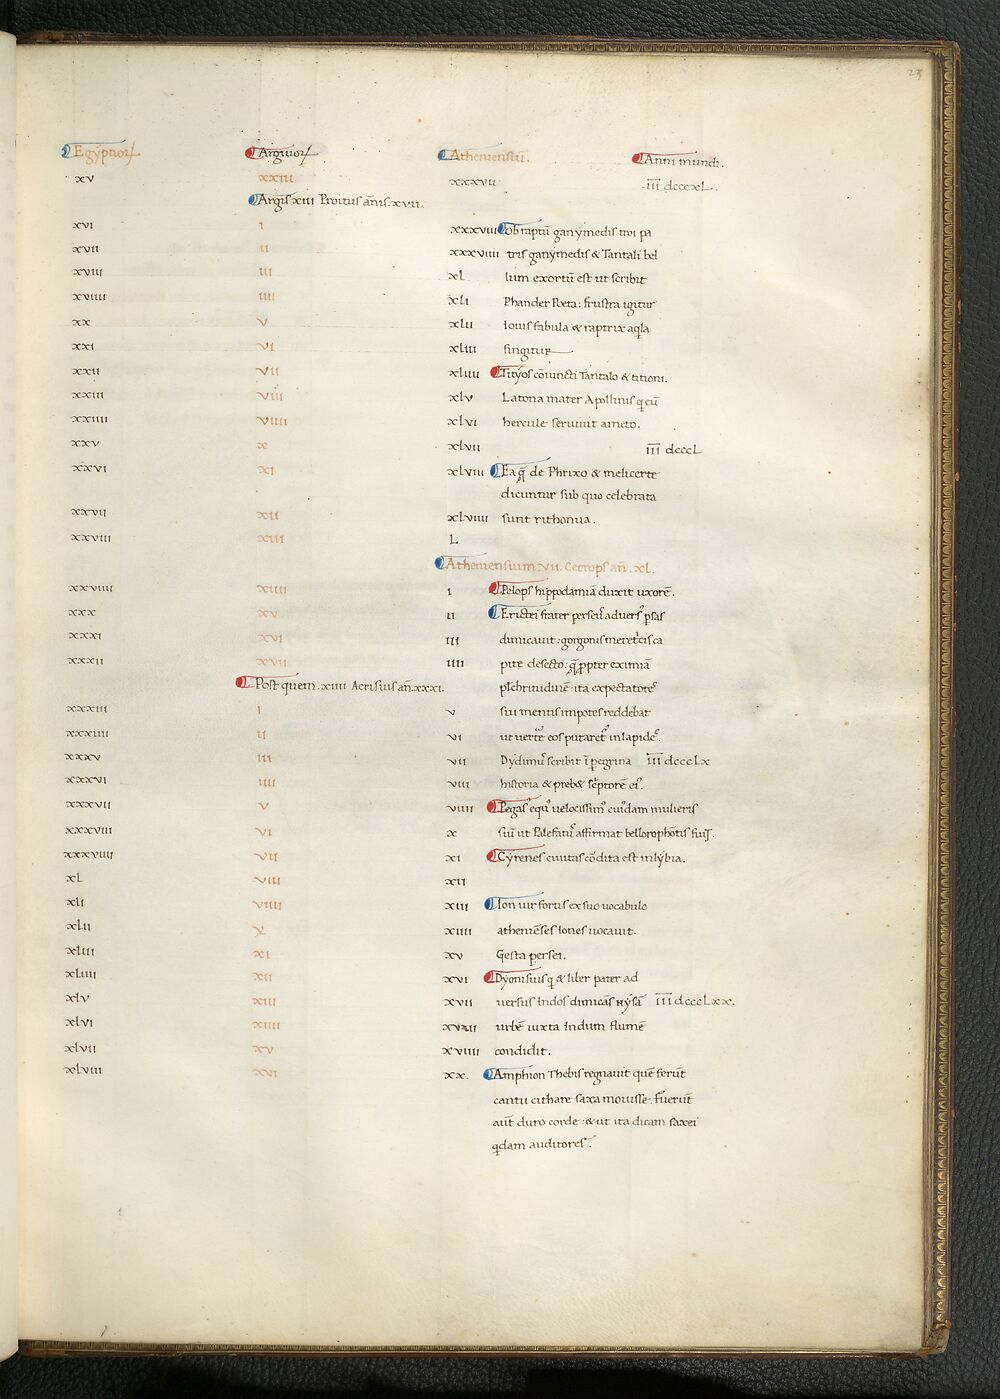 23
Egyptior Argiuor Atheniensiū. Anni mundi.
xv xxiii xxxvii .iii dcccxL.
Argis xiii Proitus añis. xvii.
xvi i xxxviii Ob raptū ganymedis troi pa
xvii ii xxxviiii tris ganymedis & Tantali bel
xviii iii xL lum exortū est ut scribit
xviiii iiii xLi Phander Poeta: frustra igitur
xx v xLii iouis fabula & raptrix aqla
xxi vi xLiii fingitur
xxii vii xLiiii Tityos cōiuncti Tantalo & titioni.
xxiii viii xLv Latona mater Apollinis q cū
xxiiii viiii xLvi hercule seruiuit ameto.
xxv x xLvii iii dcccL
xxvi xi xLviii Ea q̄ de Phrixo & melicerte
dicuntur sub quo celebrata
xxvii xii xLviiii sunt rithonia.
xxviii xiii L
Atheniensium vii. Cecrops añ. xL.
xxviiii xiiii i Pelops hippodamiā duxit uxorē.
xxx xv ii Erictei frater persei aduers psas
xxxi xvi iii dimicauit: gorgonis meretcis ca
xxxii xvii iiii pite desecto: q̄ ppter eximiā
Post quem. xiiii Acrisius añ. xxxi.
plchritudinē ita expectatores
xxxiii i v sui mentis impotes reddebat
xxxiiii ii vi ut uerte eos putaret in lapides.
xxxv iii vii Dydimus scribit i pegrina iii dcccLx
xxxvi iiii viii historia & prebet scptorē ei.
xxxvii v viiii Pegas equs uelocissim cuidam mulieris
xxxviii vi x siū ut Palefatus affirmat bellorophōtis fuis.
xxxviiii vii xi Cyrenes ciuitas cōdita est in lybia.
xL viii xii
xLi viiii xiii Ion uir fortis ex suo uocabulo
xLii x xiiii atheniēses iones uocauit.
xLiii xi xv Gesta persei.
xLiiii xii xvi Dyonisius q & liber pater ad
xLv xiii xvii uersus indos dimicās nysā iii dcccLxx.
xLvi xiiii xviii urbē iuxta indum flumē
xLvii xv xviiii condidit.
xLviii xvi xx. Amphion Thebis regnauit quē ferūt
cantu cithare saxa mouisse. fuerūt
aut̄ duro corde: & ut ita dicam saxei
qdam auditores.